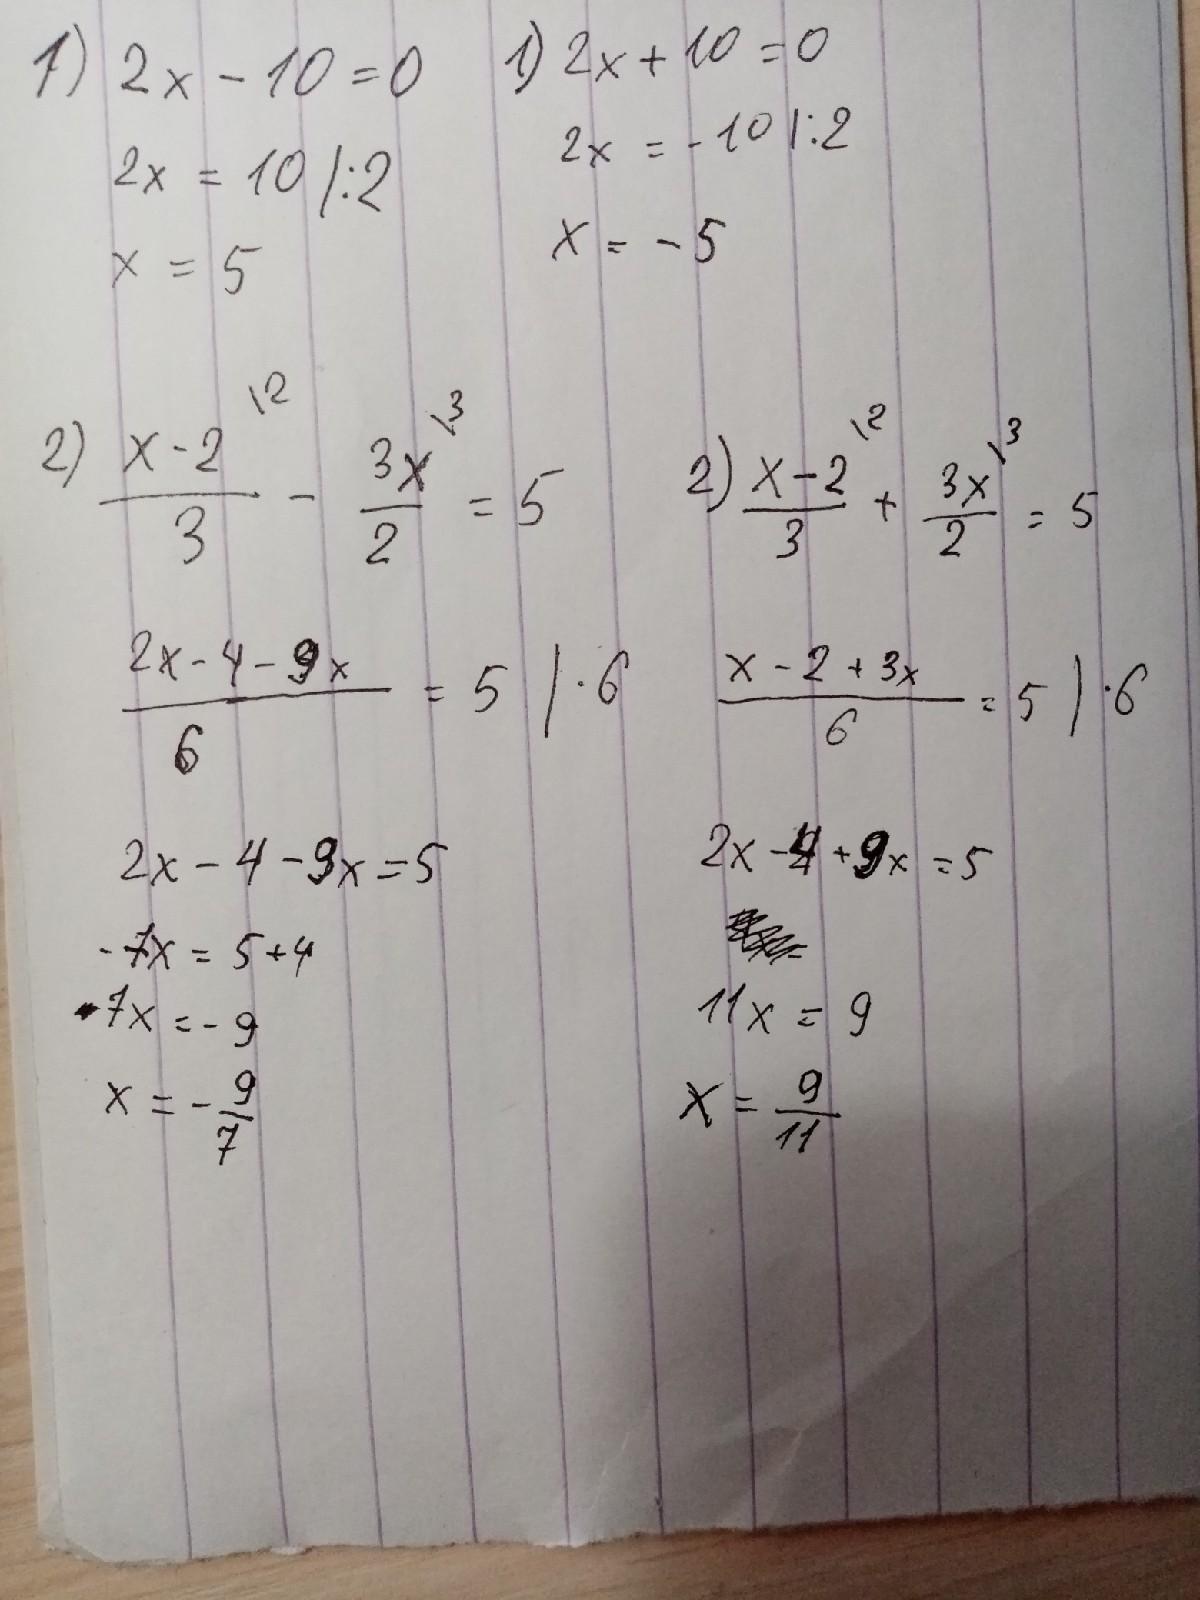 1) 2x - 10 = 0
2x = 10 |:2
x = 5
2) x - 2 \2 / 3 - 3x \3 / 2 = 5
2x - 4 - 9x / 6 = 5 | · 6
2x - 4 - 9x = 5
-7x = 5 + 4
7x = - 9
x = - 9/7
1) 2x + 10 = 0
2x = - 10 |:2
x = - 5
2) x - 2 \2 / 3 + 3x \3 / 2 = 5
x - 2 + 3x / 6 = 5 | · 6
2x - 4 + 9x = 5
11x = 9
x = 9/11